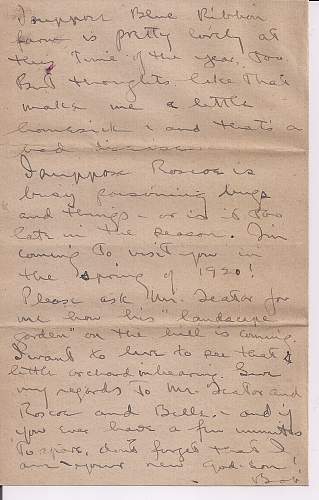 I suppose Blue Ribbon
farm is pretty lovely at
this time of the year too
But thoughts like that
make me a little
homesick & and that's a
bad disease.
I suppose Roscoe is
busy poisoning bugs
and things - or is it too
late in the season. I'm
coming to visit you in
the spring of 1920!
Please ask Mr. Teator for
me how his "landscape
garden" on the hill is coming.
I want to live to see that
little orchard in bearing. Give
my regards to Mr. Teator and
Roscoe and Belle. - and if
you ever have a few minutes
to spare, don't forget that I
am - your new God-son!
Bob